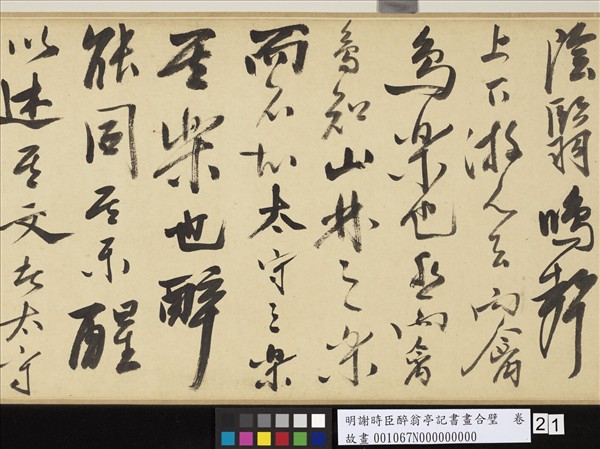 陰翳鳴聲
上下游人去而禽
鳥樂也然而禽
鳥知山林之樂
而不知太守之樂
其樂也醉
能同其樂醒
以述其文者太守
明謝時臣醉翁亭記書畫合璧 卷
故畫 001067N000000000
21